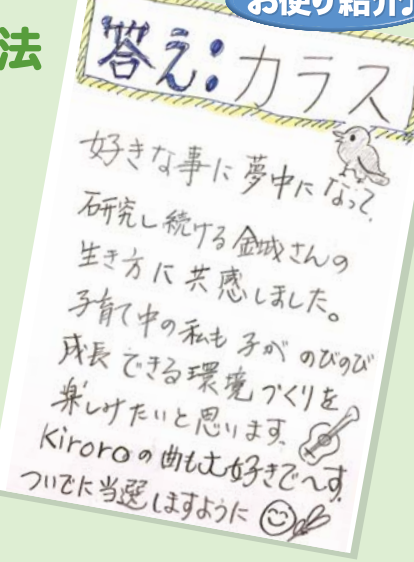 お便り紹介
法
答え:カラス
好きな事に夢中になって、
研究し続ける金城さんの
生き方に共感しました。
子育て中の私も子がのびのび
成長できる環境づくりを
楽しみたいと思います。
Kiroroの曲も大好きで〜す。
ついでに当選しますように